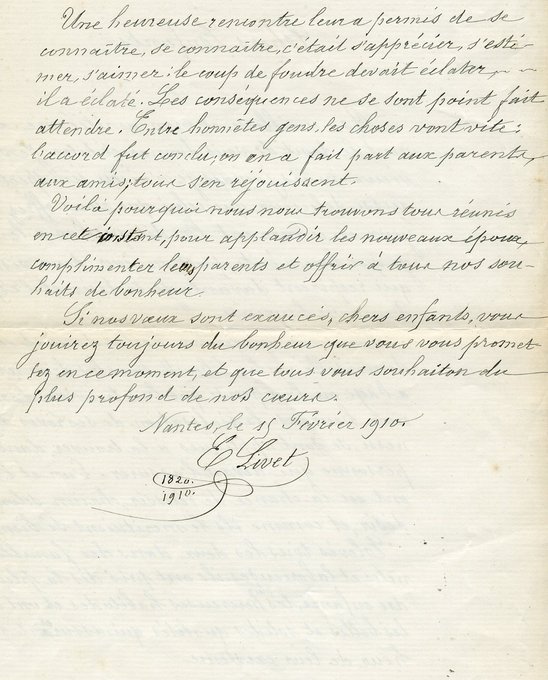 Une heureuse rencontre leur a permis de se
connaître, se connaître, c'était s'apprécier, s'esti-
mer, s'aimer: le coup de foudre devait éclater,
il a éclaté. Les conséquences ne se sont point fait
attendre. Entre honnêtes gens, les choses vont vite:
l'accord fut conclu, on en a fait part aux parents,
aux amis; tous s'en réjouissent.
Voilà pourquoi nous nous trouvons tous réunis
en cet instant, pour applaudir les nouveaux époux,
complimenter les parents et offrir à tous nos sou-
haits de bonheur.
Si nos vœux sont exaucés, chers enfants, vous
jouirez toujours du bonheur que vous vous promet-
tez en ce moment, et que tous vous souhaiton du
plus profond de nos cœurs.
Nantes, le 15 Février 1910.
E Livet
1820.
1910.